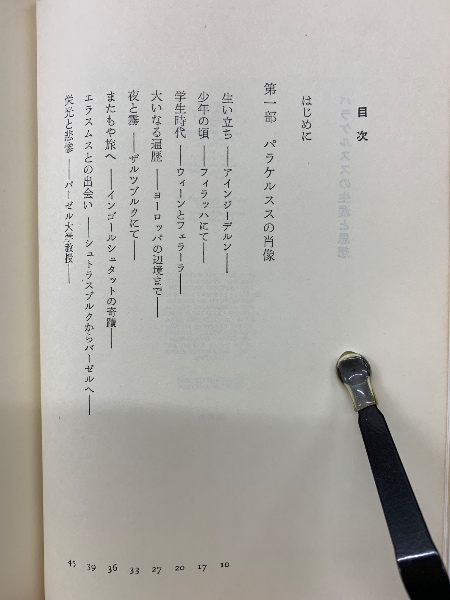 目次
はじめに
第一部 パラケルススの肖像
生い立ち ――アインジーデルン―― 10
少年の頃 ――フィラッハにて―― 17
学生時代 ――ウィーンとフェラーラ―― 20
大いなる遍歴 ――ヨーロッパの辺境まで―― 27
夜と霧 ――ザルツブルクにて―― 33
またもや旅へ ――インゴールシュタットの奇蹟―― 36
エラスムスとの出会い ――シュトラスブルクからバーゼルへ―― 39
栄光と悲惨 ――バーゼル大学教授―― 45
パラケルススの生涯と思想